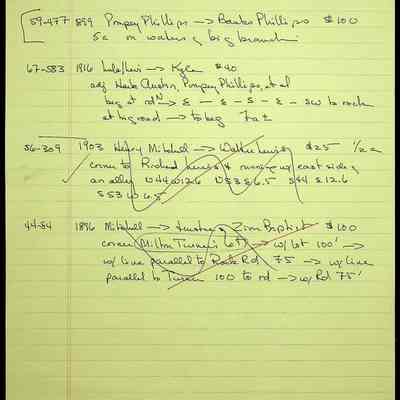 59-477 1899 Pompey Phillips → Banks Phillips $100
5a on waters of big branch
67-583 1916 Lula Lewis → Kyle $40
adj Harte Austin, Pompey Phillips, et al
beg at rd N → E - S - E - S - E - SW to rock
at big road → to beg 7 a ±
56-309 1903 Henry Mitchell → Walter Lewis $25 1/2 a
corner to Richard Lewis & running w/ east side of
an alley N44W12.6 N53E6.5 S44E12.6
S53W6.5
44-84 1896 Mitchell → Trustees of Zion Baptist $100
corner Milton Turner's lot → w/ lot 100' →
w/ line parallel to Rd 75 → w/ line
parallel to Turner 100 to rd → w/ Rd 75'